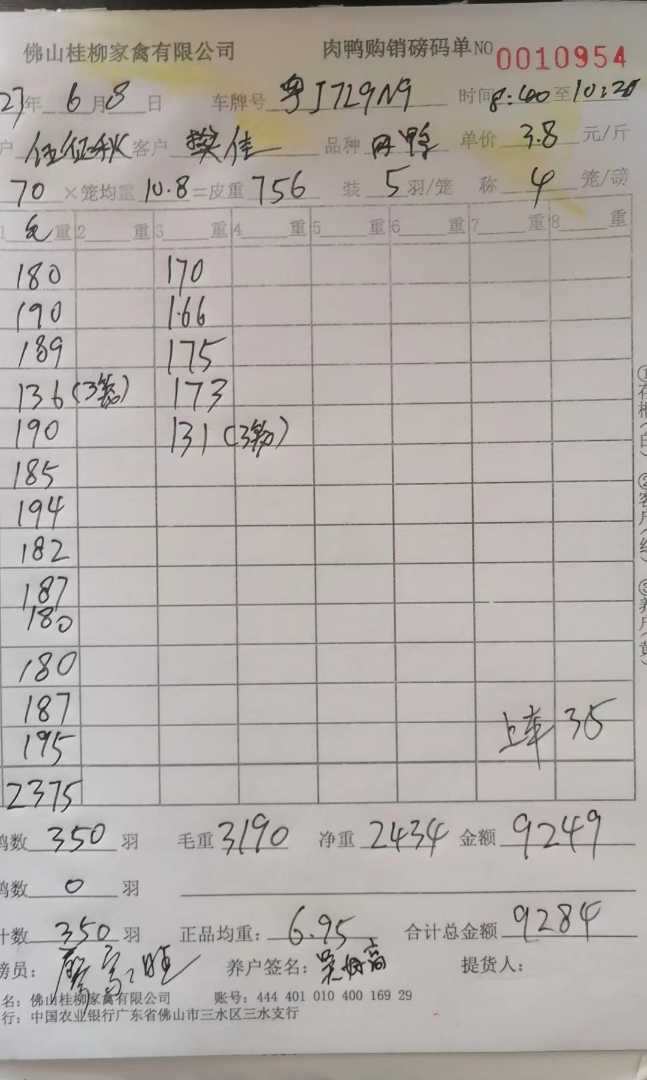 佛山桂柳家禽有限公司 肉鸭购销磅码单 NO 0010954
23年 6 月 8 日 车牌号 粤J729N9 时间 8:40 至 10:20
户 伍征秋 客户 樊佳 品种 肉鸭 单价 3.8 元/斤
70 ×笼均重 10.8 =皮重 756 装 5 羽/笼 称 4 笼/磅
1 毛 重 2 重 3 重 4 重 5 重 6 重 7 重 8 重
180 170
190 166
189 175
136(3笼) 173
190 131(3笼)
185
194
182
187
180
180
187
195 上车 35
2375
鸭数 350 羽 毛重 3190 净重 2434 金额 9249
鸭数 0 羽
计数 350 羽 正品均重: 6.95 合计总金额 9284
磅员: 养户签名: 提货人:
名: 佛山桂柳家禽有限公司 账号: 444 401 010 400 169 29
行: 中国农业银行广东省佛山市三水区三水支行
①存根(白) ②客户(红) ③养户(黄)